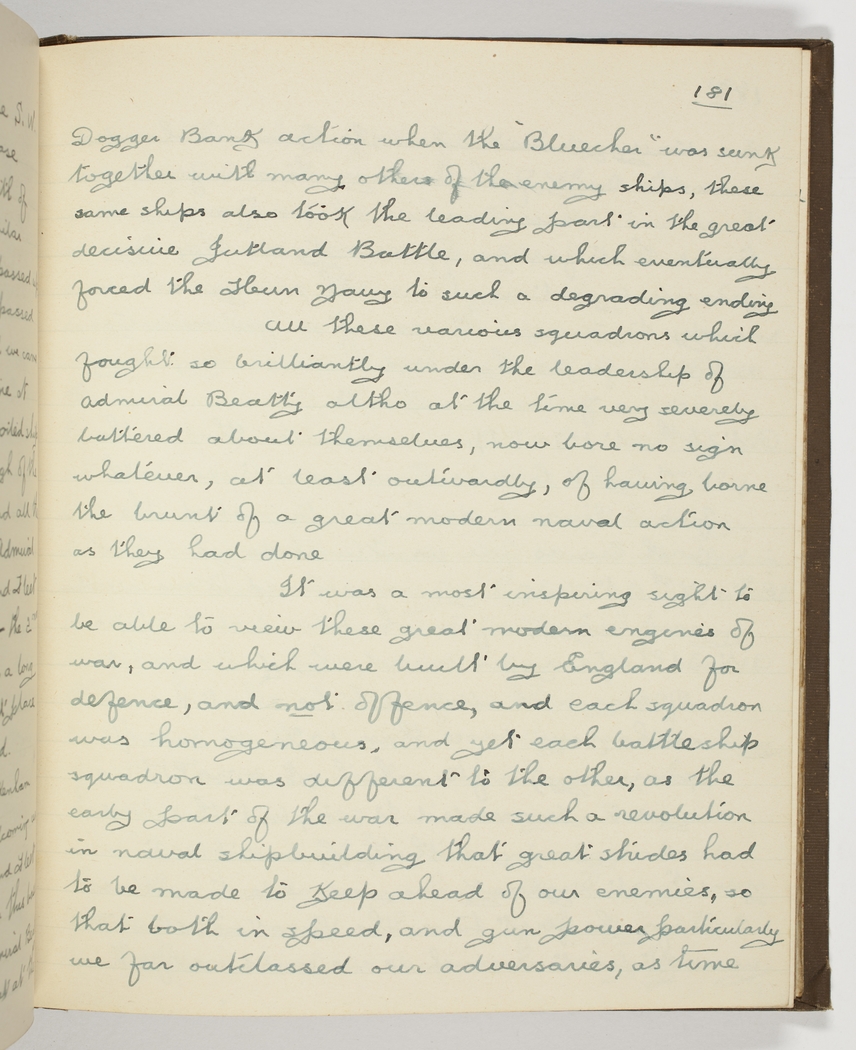 181
Dogger Bank action when the "Bluecher" was sunk
together with many others of the enemy ships, these
same ships also took the leading part in the great
decisive Jutland Battle, and which eventually
forced the Hun Navy to such a degrading ending
All these various squadrons which
fought so brilliantly under the leadership of
Admiral Beatty altho at the time very severely
battered about themselves, now bore no sign
whatever, at least outwardly, of having borne
the brunt of a great modern naval action
as they had done
It was a most inspiring sight to
be able to view these great modern engines of
war, and which were built by England for
defence, and not offence, and each squadron
was homogeneous, and yet each battleship
squadron was different to the other, as the
early part of the war made such a revolution
in naval shipbuilding that great strides had
to be made to keep ahead of our enemies, so
that both in speed, and gun power particularly
we far outclassed our adversaries, as time